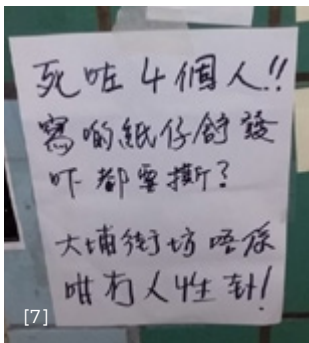 死咗4個人!!
寫啲紙仔舒發
吓都要撕?
大埔街坊唔係
咁冇人性卦!
[7]